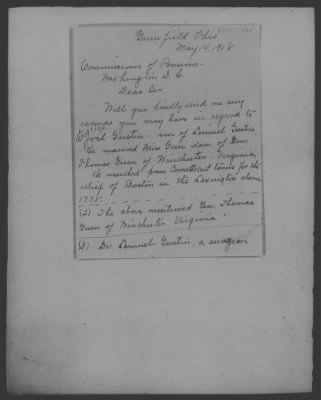 Greenfield Ohio
May 14, 1918
Commissioner of Pensions -
Washington D. C.
Dear Sir.
Will you kindly send me any
records you may have in regard to
Joel Gustin - son of Lemuel Gustin
He married Miss Green dau of Gen.
Thomas Green of Winchester, Virginia,
He marched from Connecticut towns for the
relief of Boston in the Lexington alarm
1775.
(2) The above mentioned Gen. Thomas
Green of Winchester, Virginia.
(3) Dr. Lemuel Gustin, a surgeon